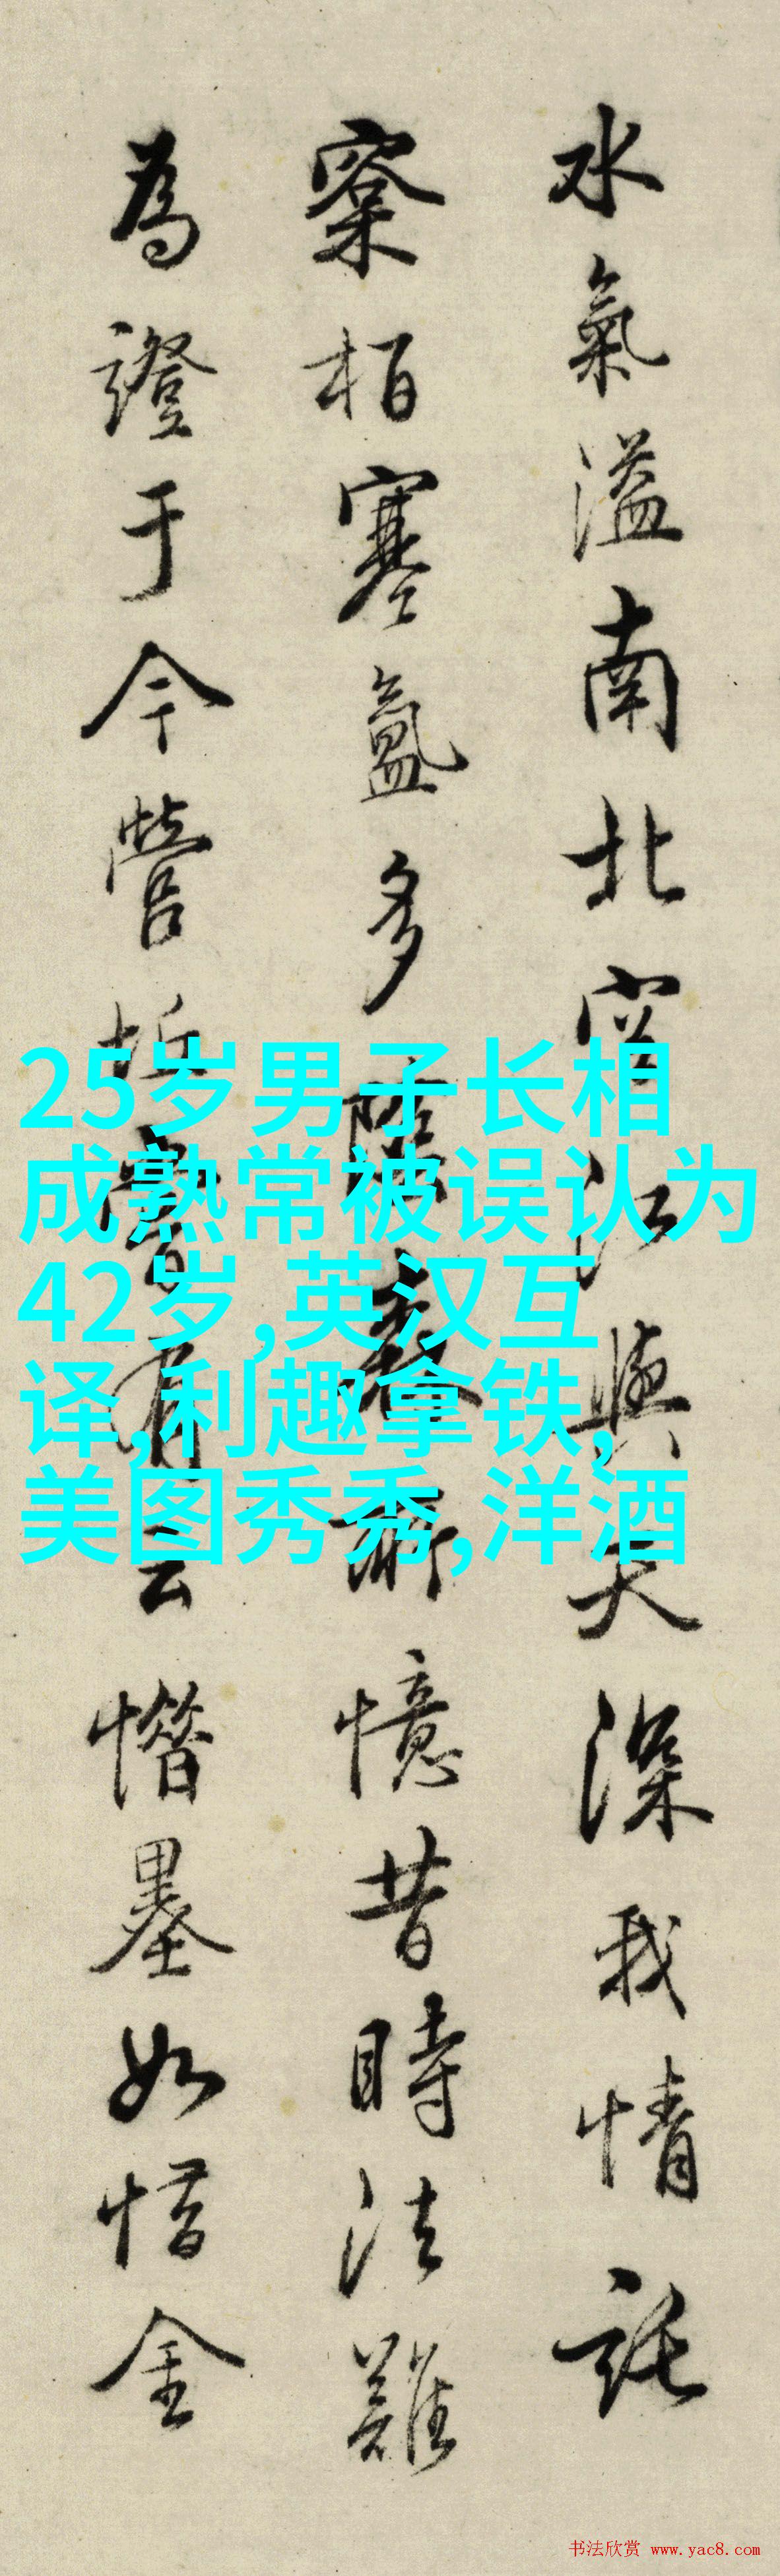 水氣溢南北江與天深我情託
柏塞氳多憶昔時法難
為證于今營有云墨如惜金
25岁男子长相
成熟常被误认为
42岁,英汉互
译,利趣拿铁,
美图秀秀,洋酒
书法欣赏 www.yac8.com